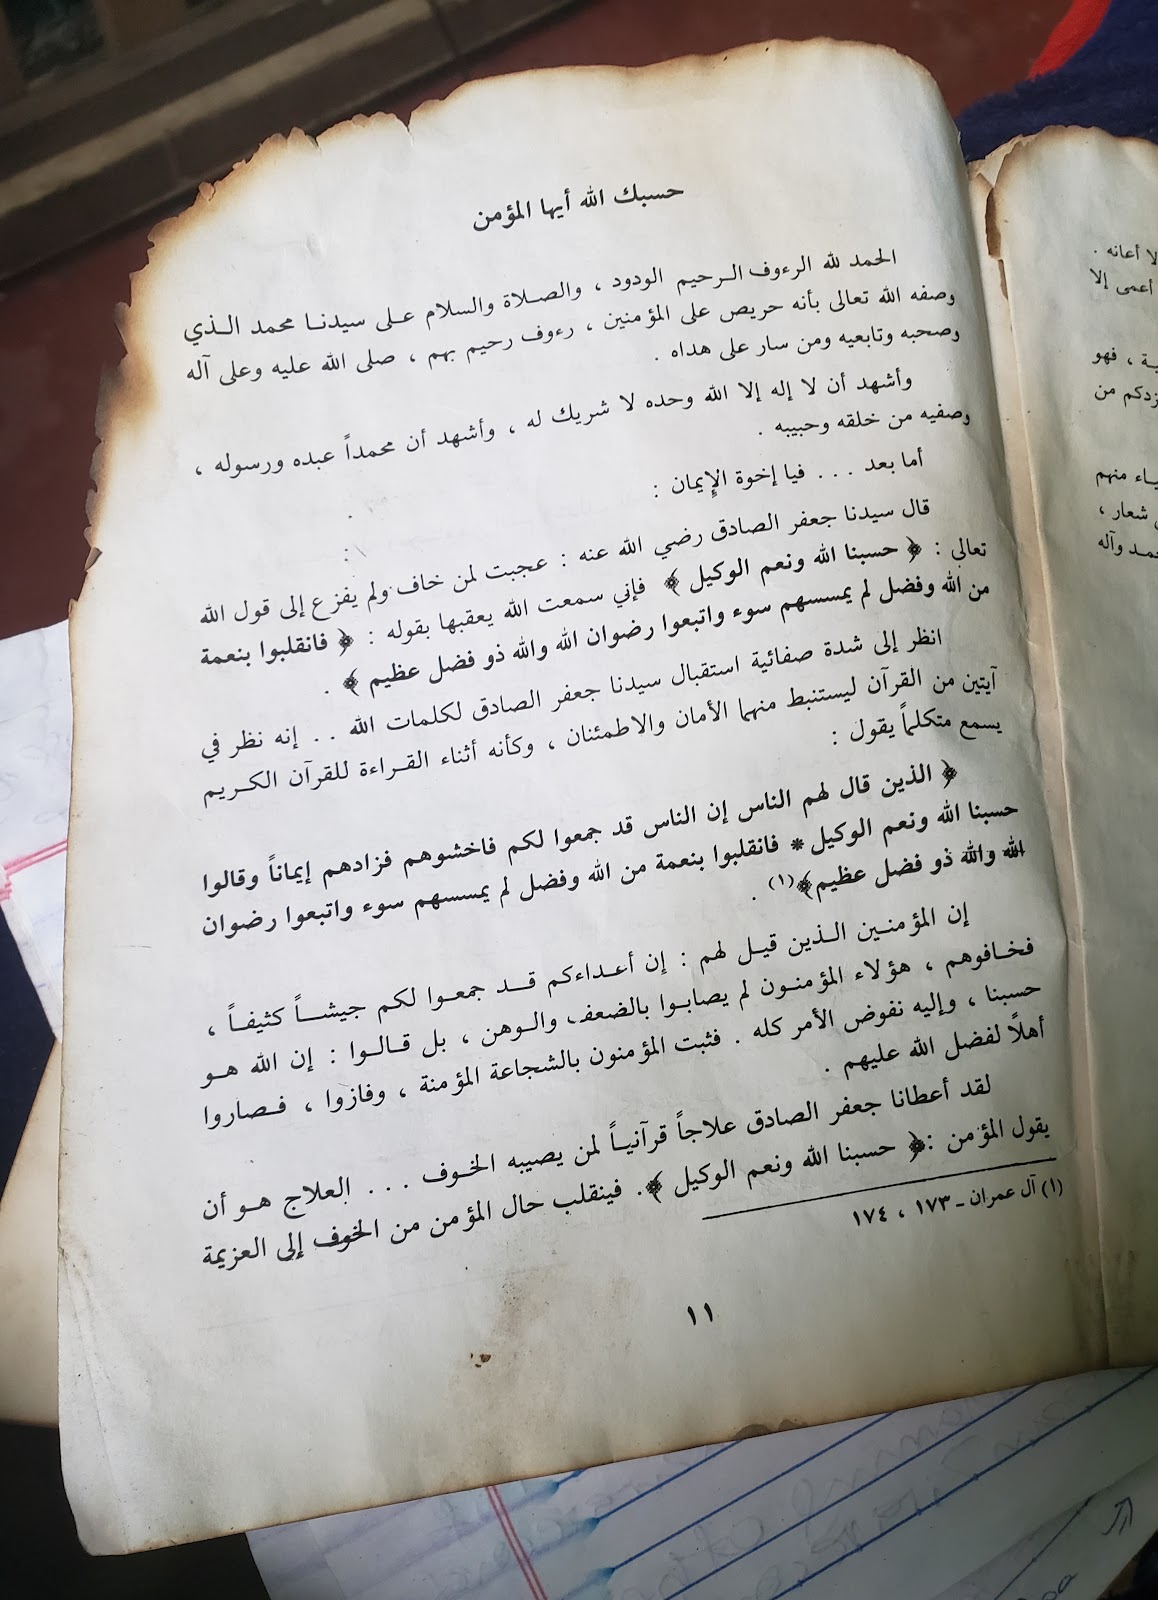 حسبك الله أيها المؤمن
الحمد لله الرءوف الرحيم الودود ، والصلاة والسلام على سيدنا محمد الذي
وصفه الله تعالى بأنه حريص على المؤمنين ، رءوف رحيم بهم ، صلى الله عليه وعلى آله
وصحبه وتابعيه ومن سار على هداه .
وأشهد أن لا إله إلا الله وحده لا شريك له ، وأشهد أن محمداً عبده ورسوله ،
وصفيه من خلقه وحبيبه .
أما بعد . . . فيا إخوة الإيمان :
قال سيدنا جعفر الصادق رضي الله عنه : عجبت لمن خاف ولم يفزع إلى قول الله
تعالى : ﴿ حسبنا الله ونعم الوكيل ﴾ فإني سمعت الله يعقبها بقوله : ﴿ فانقلبوا بنعمة
من الله وفضل لم يمسسهم سوء واتبعوا رضوان الله والله ذو فضل عظيم ﴾ .
انظر إلى شدة صفائية استقبال سيدنا جعفر الصادق لكلمات الله . . إنه نظر في
آيتين من القرآن ليستنبط منهما الأمان والاطمئنان ، وكأنه أثناء القراءة للقرآن الكريم
يسمع متكلماً يقول :
﴿ الذين قال لهم الناس إن الناس قد جمعوا لكم فاخشوهم فزادهم إيماناً وقالوا
حسبنا الله ونعم الوكيل * فانقلبوا بنعمة من الله وفضل لم يمسسهم سوء واتبعوا رضوان
الله والله ذو فضل عظيم ﴾(١) .
إن المؤمنين الذين قيل لهم : إن أعداءكم قد جمعوا لكم جيشاً كثيفاً ،
فخافوهم ، هؤلاء المؤمنون لم يصابوا بالضعف والوهن ، بل قالوا : إن الله هو
حسبنا ، وإليه نفوض الأمر كله . فثبت المؤمنون بالشجاعة المؤمنة ، وفازوا ، فصاروا
أهلاً لفضل الله عليهم .
لقد أعطانا جعفر الصادق علاجاً قرآنياً لمن يصيبه الخوف . . . العلاج هو أن
يقول المؤمن : ﴿ حسبنا الله ونعم الوكيل ﴾. فينقلب حال المؤمن من الخوف إلى العزيمة
(١) آل عمران ـ ١٧٣ ، ١٧٤
١١
لا أعانه .
أعمى إلا
ية ، فهو
زدكم من
ياء منهم
شعار ،
حمد وآله